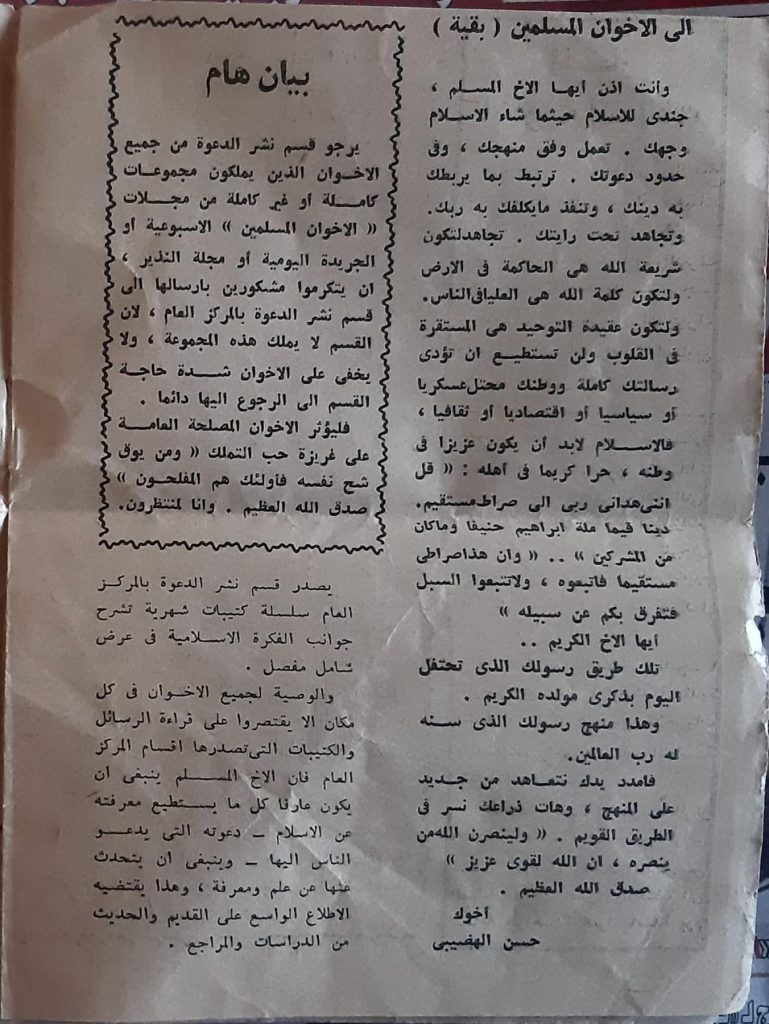 الى الاخوان المسلمين ( بقية )
وأنت اذن أيها الاخ المسلم ،
جندى للاسلام حيثما شاء الاسلام
وجهك . تعمل وفق منهجك ، وفى
حدود دعوتك . ترتبط بما يربطك
به دينك ، وتنفذ مايكلفك به ربك.
وتجاهد تحت رايتك . تجاهدلتكون
شريعة الله هى الحاكمة فى الارض
ولتكون كلمة الله هى العليافى الناس.
ولتكون عقيدة التوحيد هى المستقرة
فى القلوب ولن تستطيع ان تؤدى
رسالتك كاملة ووطنك محتل عسكريا
أو سياسيا أو اقتصاديا أو ثقافيا ،
فالاسلام لابد أن يكون عزيزا فى
وطنه ، حرا كريما فى أهله : « قل
اننى هدانى ربى الى صراط مستقيم.
دينا قيما ملة ابراهيم حنيفا وماكان
من المشركين » .. « وان هذا صراطى
مستقيما فاتبعوه ، ولاتتبعوا السبل
فتفرق بكم عن سبيله »
أيها الاخ الكريم ..
تلك طريق رسولك الذى تحتفل
اليوم بذكرى مولده الكريم .
وهذا منهج رسولك الذى سنه
له رب العالمين.
فامدد يدك نتعاهد من جديد
على المنهج ، وهات ذراعك نسر فى
الطريق القويم . « ولينصرن الله من
ينصره ، ان الله لقوى عزيز »
صدق الله العظيم .
أخوك
حسن الهضيبى
بيان هام
يرجو قسم نشر الدعوة من جميع
الاخوان الذين يملكون مجموعات
كاملة أو غير كاملة من مجلات
« الاخوان المسلمين » الاسبوعية أو
الجريدة اليومية أو مجلة النذير ،
ان يتكرموا مشكورين بارسالها الى
قسم نشر الدعوة بالمركز العام ، لان
القسم لا يملك هذه المجموعة ، ولا
يخفى على الاخوان شدة حاجة
القسم الى الرجوع اليها دائما .
فليؤثر الاخوان المصلحة العامة
على غريزة حب التملك « ومن يوق
شح نفسه فأولئك هم المفلحون »
صدق الله العظيم . وانا لمنتظرون.
يصدر قسم نشر الدعوة بالمركز
العام سلسلة كتيبات شهرية تشرح
جوانب الفكرة الاسلامية فى عرض
شامل مفصل .
والوصية لجميع الاخوان فى كل
مكان الا يقتصروا على قراءة الرسائل
والكتيبات التى تصدرها اقسام المركز
العام فان الاخ المسلم ينبغى ان
يكون عارفا كل ما يستطيع معرفته
عن الاسلام – دعوته التى يدعو
الناس اليها – وينبغى ان يتحدث
عنها عن علم ومعرفة ، وهذا يقتضيه
الاطلاع الواسع على القديم والحديث
من الدراسات والمراجع .